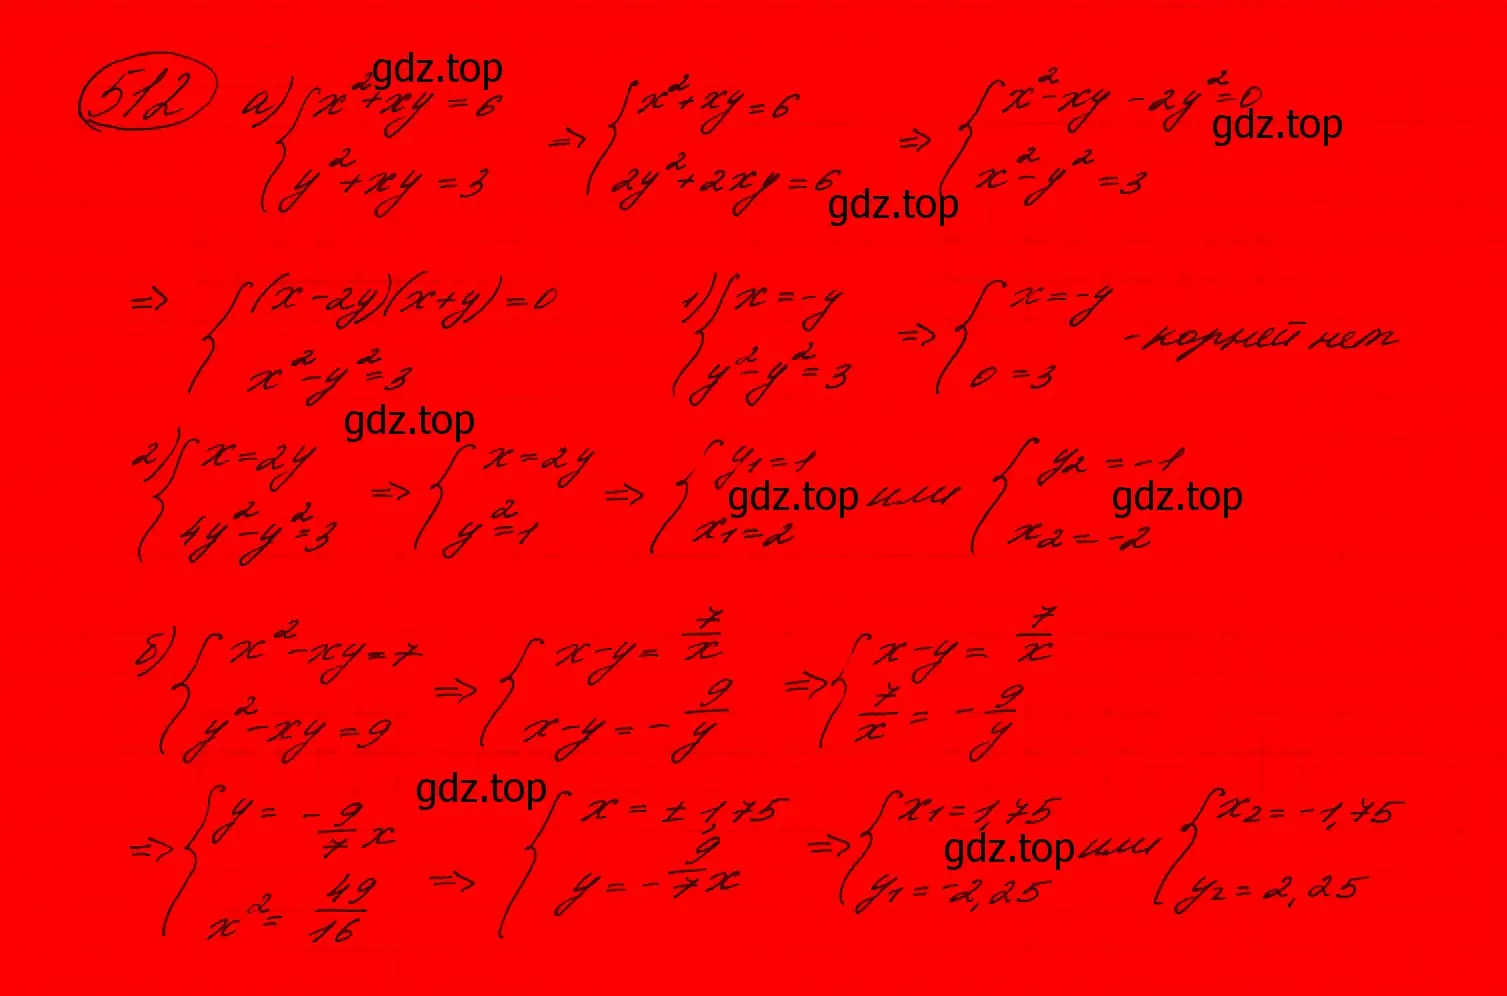 512 а) { x² + xy = 6 ; y² + xy = 3 => { x² + xy = 6 ; 2y² + 2xy = 6 => { x² - xy - 2y² = 0 ; x² - y² = 3
gdz.top
gdz.top
gdz.top
=> { (x - 2y)(x + y) = 0 ; x² - y² = 3 1) { x = -y ; y² - y² = 3 => { x = -y ; 0 = 3 - корней нет
gdz.top
2) { x = 2y ; 4y² - y² = 3 => { x = 2y ; y² = 1 => { y₁ = 1 ; x₁ = 2 или { y₂ = -1 ; x₂ = -2
gdz.top gdz.top
б) { x² - xy = 7 ; y² - xy = 9 => { x - y = 7/x ; x - y = -9/y => { x - y = 7/x ; 7/x = -9/y
gdz.top
=> { y = -9/7 x ; x² = 49/16 => { x = ±1,75 ; y = -9/7 x => { x₁ = 1,75 ; y₁ = -2,25 или { x₂ = -1,75 ; y₂ = 2,25
gdz.top